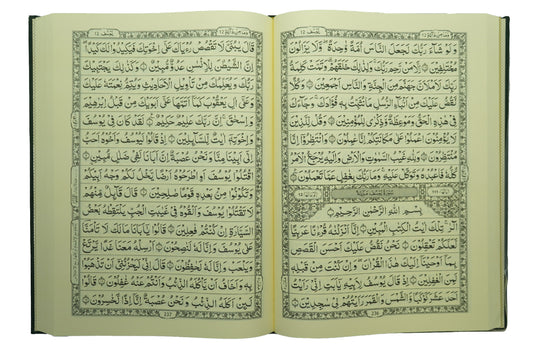 وَلَوْ شَآءَ رَبُّكَ لَجَعَلَ النَّاسَ اُمَّةً وَّاحِدَةً وَّلَا يَزَالُوْنَ
مُخْتَلِفِيْنَ اِلَّا مَنْ رَّحِمَ رَبُّكَ وَلِذٰلِكَ خَلَقَهُمْ وَتَمَّتْ كَلِمَةُ
رَبِّكَ لَاَمْلَئَنَّ جَهَنَّمَ مِنَ الْجِنَّةِ وَالنَّاسِ اَجْمَعِيْنَ وَكُلًّا
نَّقُصُّ عَلَيْكَ مِنْ اَنْۢبَآءِ الرُّسُلِ مَا نُثَبِّتُ بِهٖ فُؤَادَكَ وَجَآءَكَ
فِيْ هٰذِهِ الْحَقُّ وَمَوْعِظَةٌ وَّذِكْرٰى لِلْمُؤْمِنِيْنَ وَقُلْ لِّلَّذِيْنَ
لَا يُؤْمِنُوْنَ اعْمَلُوْا عَلٰى مَكَانَتِكُمْ اِنَّا عٰمِلُوْنَ وَانْتَظِرُوْا اِنَّا
مُنْتَظِرُوْنَ وَلِلّٰهِ غَيْبُ السَّمٰوٰتِ وَالْاَرْضِ وَاِلَيْهِ يُرْجَعُ الْاَمْرُ
كُلُّهٗ فَاعْبُدْهُ وَتَوَكَّلْ عَلَيْهِ وَمَا رَبُّكَ بِغَافِلٍ عَمَّا تَعْمَلُوْنَ
بِسْمِ اللّٰهِ الرَّحْمٰنِ الرَّحِيْمِ
الٓرٰ تِلْكَ اٰيٰتُ الْكِتٰبِ الْمُبِيْنِ اِنَّآ اَنْزَلْنٰهُ قُرْءٰنًا عَرَبِيًّا
لَّعَلَّكُمْ تَعْقِلُوْنَ نَحْنُ نَقُصُّ عَلَيْكَ اَحْسَنَ الْقَصَصِ
بِمَآ اَوْحَيْنَآ اِلَيْكَ هٰذَا الْقُرْاٰنَ وَاِنْ كُنْتَ مِنْ قَبْلِهٖ
لَمِنَ الْغٰفِلِيْنَ اِذْ قَالَ يُوْسُفُ لِاَبِيْهِ يٰٓاَبَتِ اِنِّيْ رَاَيْتُ
اَحَدَ عَشَرَ كَوْكَبًا وَّالشَّمْسَ وَالْقَمَرَ رَاَيْتُهُمْ لِيْ سٰجِدِيْنَ
236
قَالَ يٰبُنَيَّ لَا تَقْصُصْ رُءْيَاكَ عَلٰٓى اِخْوَتِكَ فَيَكِيْدُوْا لَكَ كَيْدًا
اِنَّ الشَّيْطٰنَ لِلْاِنْسَانِ عَدُوٌّ مُّبِيْنٌ وَكَذٰلِكَ يَجْتَبِيْكَ
رَبُّكَ وَيُعَلِّمُكَ مِنْ تَاْوِيْلِ الْاَحَادِيْثِ وَيُتِمُّ نِعْمَتَهٗ عَلَيْكَ
وَعَلٰٓى اٰلِ يَعْقُوْبَ كَمَآ اَتَمَّهَا عَلٰٓى اَبَوَيْكَ مِنْ قَبْلُ اِبْرٰهِيْمَ
وَاِسْحٰقَ اِنَّ رَبَّكَ عَلِيْمٌ حَكِيْمٌ لَقَدْ كَانَ فِيْ يُوْسُفَ
وَاِخْوَتِهٖٓ اٰيٰتٌ لِّلسَّآئِلِيْنَ اِذْ قَالُوْا لَيُوْسُفُ وَاَخُوْهُ اَحَبُّ
اِلٰٓى اَبِيْنَا مِنَّا وَنَحْنُ عُصْبَةٌ اِنَّ اَبَانَا لَفِيْ ضَلٰلٍ مُّبِيْنٍ
اقْتُلُوْا يُوْسُفَ اَوِ اطْرَحُوْهُ اَرْضًا يَّخْلُ لَكُمْ وَجْهُ اَبِيْكُمْ
وَتَكُوْنُوْا مِنْۢ بَعْدِهٖ قَوْمًا صٰلِحِيْنَ قَالَ قَآئِلٌ مِّنْهُمْ
لَا تَقْتُلُوْا يُوْسُفَ وَاَلْقُوْهُ فِيْ غَيٰبَتِ الْجُبِّ يَلْتَقِطْهُ بَعْضُ
السَّيَّارَةِ اِنْ كُنْتُمْ فٰعِلِيْنَ قَالُوْا يٰٓاَبَانَا مَا لَكَ لَا تَاْمَنَّا
عَلٰى يُوْسُفَ وَاِنَّا لَهٗ لَنٰصِحُوْنَ اَرْسِلْهُ مَعَنَا غَدًا يَّرْتَعْ
وَيَلْعَبْ وَاِنَّا لَهٗ لَحٰفِظُوْنَ قَالَ اِنِّيْ لَيَحْزُنُنِيْٓ اَنْ تَذْهَبُوْا
بِهٖ وَاَخَافُ اَنْ يَّاْكُلَهُ الذِّئْبُ وَاَنْتُمْ عَنْهُ غٰفِلُوْنَ قَالُوْا
لَئِنْ اَكَلَهُ الذِّئْبُ وَنَحْنُ عُصْبَةٌ اِنَّآ اِذًا لَّخٰسِرُوْنَ
237